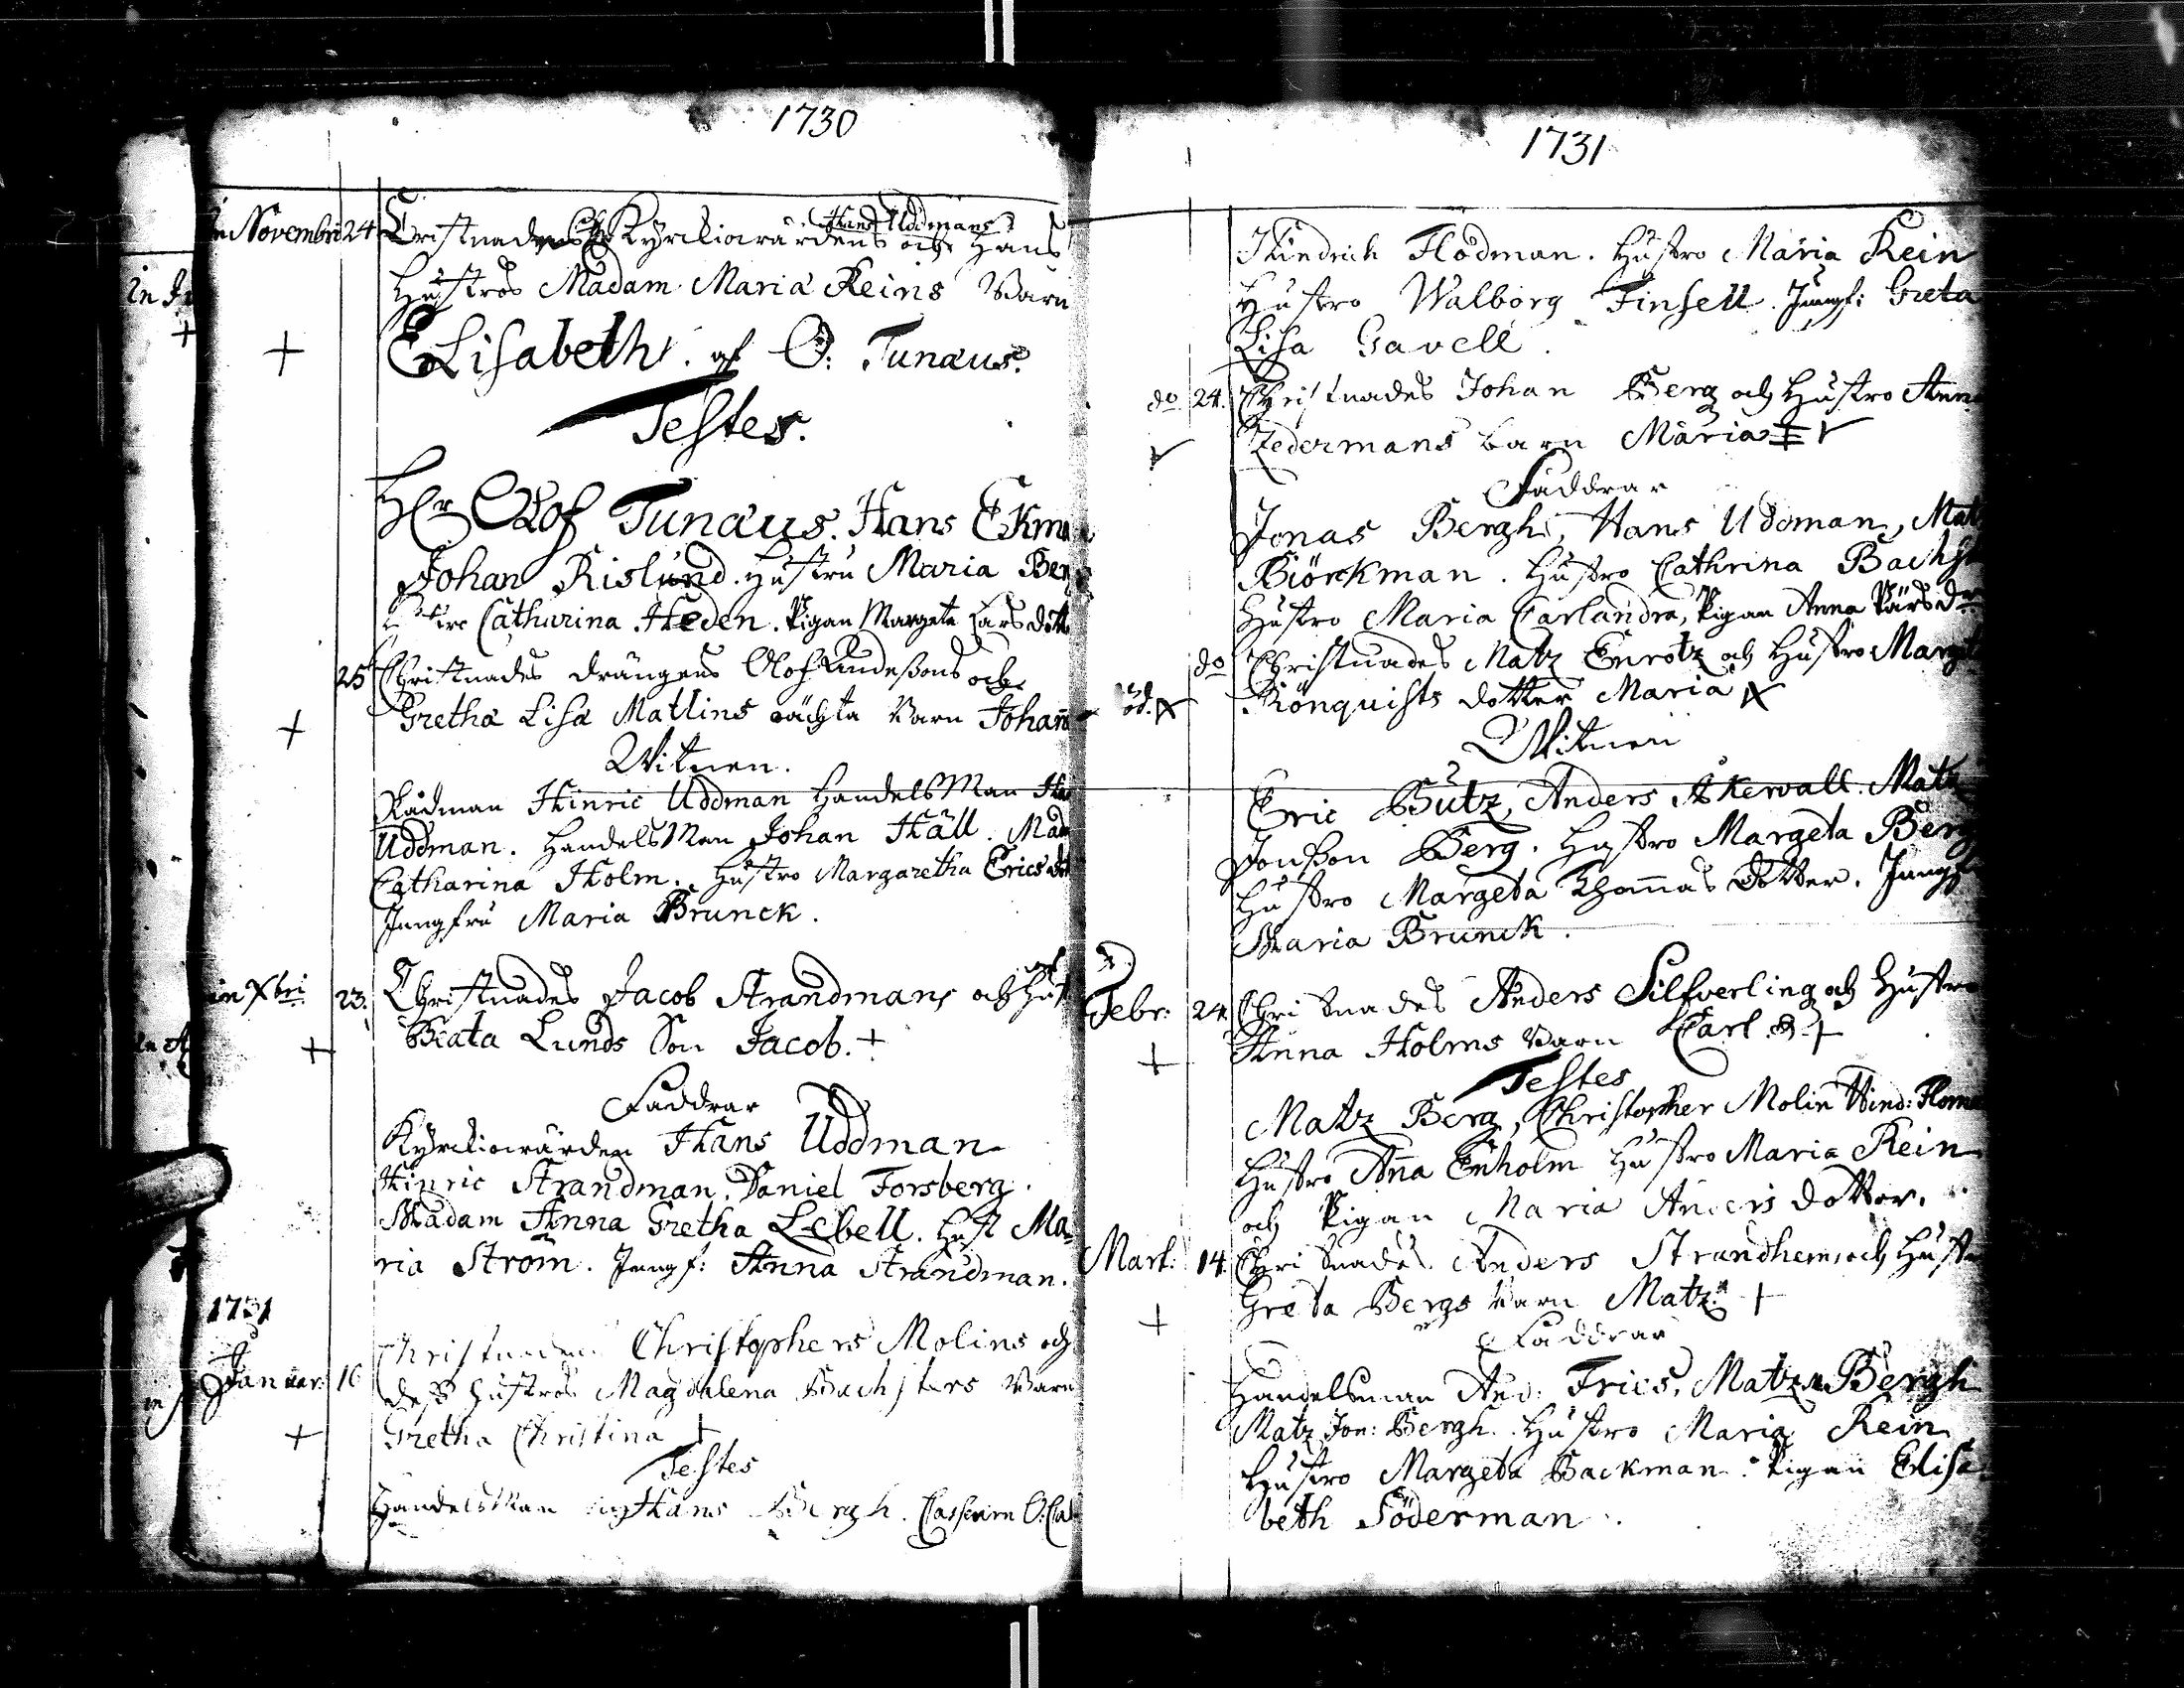 1730
in Novembri 24 Cristnades Kyrckiowärdens Hans Uddmans och Hans
Hustros Madam Maria Reins Barn
Elisabeth. af O: Tunæus.
Testes.
Hr Olof Tunæus. Hans Ekman
Johan Rislund. Hustru Maria Berg
Catharina Heden. Pigan Margeta Larsdott
25 Christnades drängens Olof och
Gretha Lisa Matlins oächta Barn Johan
Witnen.
Rådman Hinric Uddman HandelsMan
Uddman. HandelsMan Johan Häll. Mad
Catharina Holm. Hustro Margaretha Ericsdot
Jungfru Maria Brunck.
in Xbri 23. Christnades Jacob Strandmans och Hust
Beata Lunds Son Jacob. +
Faddrar
Kyrckiowärden Hans Uddman
Hinric Strandman. Daniel Forsberg.
Madam Anna Gretha Lebell. Hust Ma-
ria Ström. Jungf: Anna Strandman.
1731
Januar: 16 Christnades Christophers Molins och
dess hustros Magdalena Bachsters Barn
Gretha Christina +
Testes
HandelsMan Hans Bergh.
1731
Hindrich Flodman. Hustro Maria Rein
Hustro Walborg Finsell. Jungf: Greta
Lisa Gavell.
do 24. Christnades Johan Berg och Hustro Anna
Zedermans barn Maria
Faddrar
Jonas Bergh, Hans Uddman, Matz
Biörckman. Hustro Cathrina
Hustro Maria Carlandra, Pigan Anna Pärsdr
do Christnades Matz Enrotz och Hustro Margeta
Rönquists dotter Maria
Witnen
Eric Butz, Anders Åkerwall. Matz
Jonsson Berg. Hustro Margeta Berg
Hustro Margeta Thomas Dotter. Jungf
Maria Brunck.
Febr: 24. Christnades Anders Silfverling och Hustro
Anna Holms Barn Carl +
Testes
Matz Berg, Christopher Molin Hind:
Hustro Anna Enholm Hustro Maria Rein
och Pigan Maria Anders dotter.
Mart: 14. Christnades Anders Strandhems och Hustro
Greta Bergs Barn Matz +
Faddrar
Handelsman And: Fries, Matz Bergh
Matz Jon: Bergh. Hustro Maria Rein
Hustro Margeta Backman. Pigan Elisa
beth Söderman.